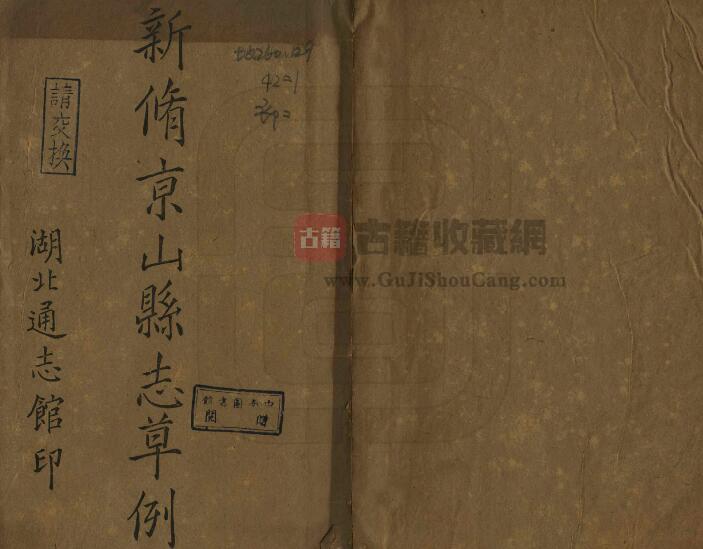 新脩京山縣志草例
湖北通志館印
請交換
圖書館
閱
古籍
古籍收藏網
www.GuJiShouCang.com